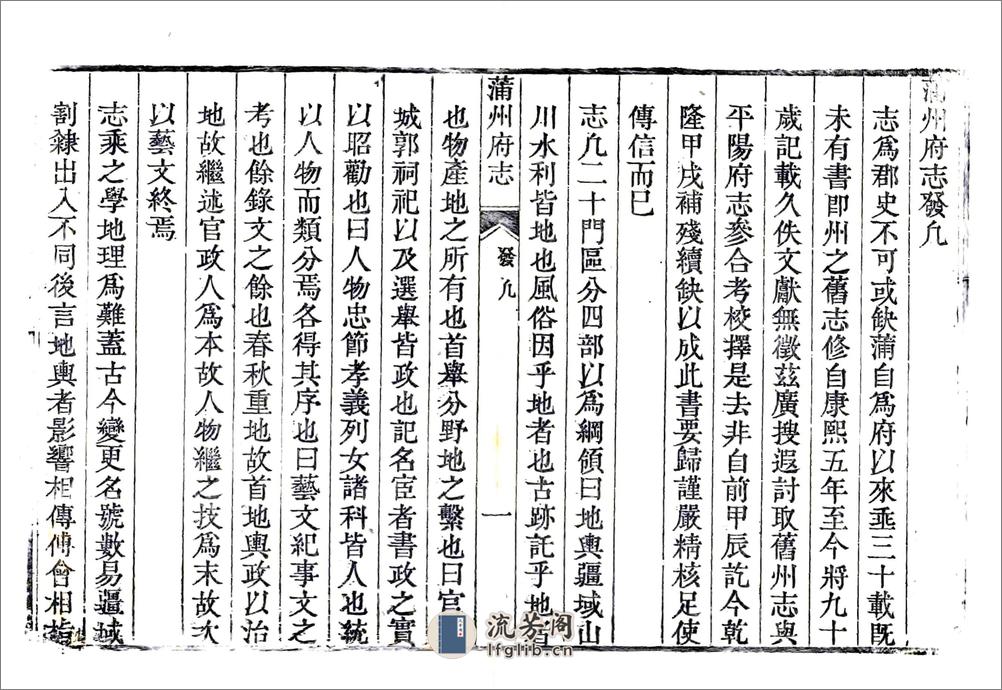 蒲州府志發凢
志爲郡史不可或缺蒲自爲府以來埀三十載旣
未有書即州之舊志修自康熙五年至今將九十
歲記載久佚文獻無徵茲廣搜遐討取舊州志與
平陽府志參合考校擇是去非自前甲辰訖今乾
隆甲戌補殘續缺以成此書要歸謹嚴精核足使
傳信而已
志凢二十門區分四部以爲綱領曰地輿疆域山
川水利皆地也風俗因乎地者也古跡託乎地者
蒲州府志
發凢
一
也物產地之所有也首舉分野地之繫也曰官
城郭祠祀以及選舉皆政也記名宦者書政之實
以昭勸也曰人物忠節孝義列女諸科皆人也統
以人物而類分焉各得其序也曰藝文紀事文之
考也餘錄文之餘也春秋重地故首地輿政以治
地故繼述官政人爲本故人物繼之技爲末故次
以藝文終焉
志乘之學地理爲難蓋古今變更名號數易疆域
割隸出入不同後言地輿者影響相傳傅會相指
流芳阁
lfglib.cn